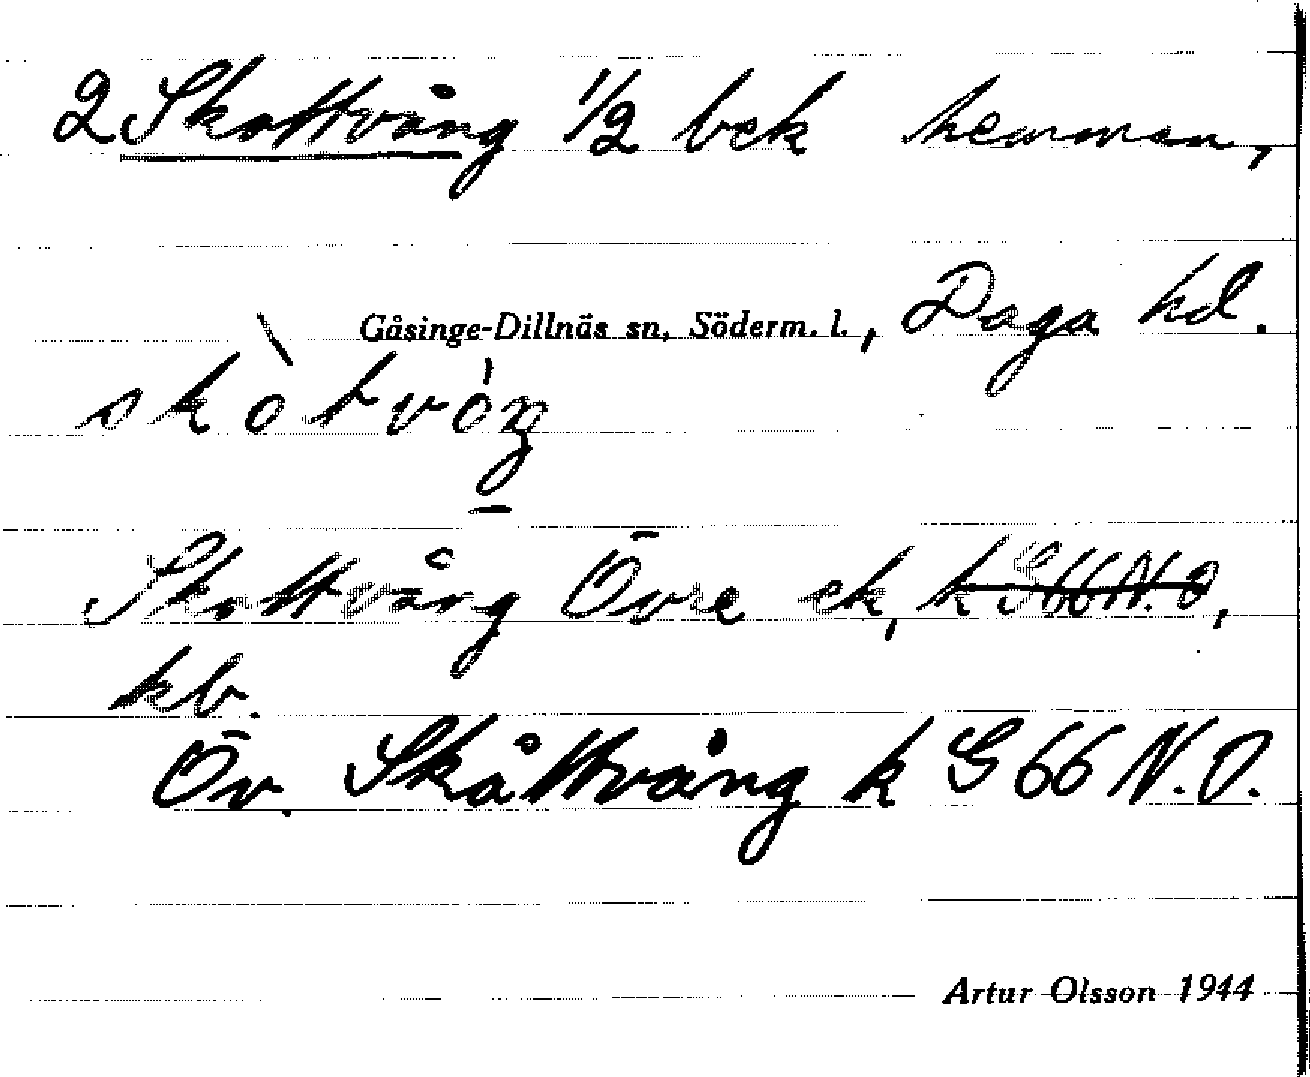 2 Skottvång 1/2 bek hemman,
Gåsinge-Dillnäs sn, Söderm. l., Daga hd.
skòtvóŋ
Skottvång Övre ek, k G66 N.O,
kb.
Öv. Skåttvång k G 66 N.O.
Artur Olsson 1944